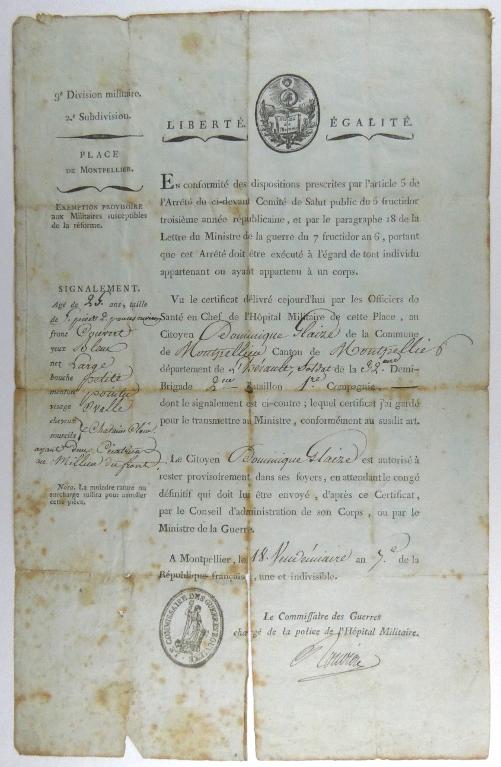 9e Division militaire.
2.e Subdivision.
PLACE
DE MONTPELLIER.
EXEMPTION PROVISOIRE
aux Militaires susceptibles
de la réforme.
LIBERTÉ. ÉGALITÉ.
EN conformité des dispositions prescrites par l'article 5 de
l'Arrêté du ci-devant Comité de Salut public du 5 fructidor
troisième année républicaine, et par le paragraphe 18 de la
Lettre du Ministre de la guerre du 7 fructidor an 6, portant
que cet Arrêté doit être exécuté à l'égard de tout individu
appartenant ou ayant appartenu à un corps.
SIGNALEMENT.
Agé de 25 ans, taille
de 5 pieds 2 pouces
front Couvert
yeux
nez Large
bouche petite
menton pointu
visage Ovalle
cheveux
sourcils Chatain
ayant Deux Cicatrices
au Millieu du front
NOTA. La moindre rature ou
surcharge suffira pour annuller
cette pièce.
Vu le certificat délivré cejourd'hui par les Officiers de
Santé en Chef de l'Hôpital Militaire de cette Place, au
Citoyen Dominique Glaize de la Commune
de Montpellier Canton de Montpellier
département de L'hérault, Soldat de la Demi-
Brigade 2me Bataillon 1re Compagnie
dont le signalement est ci-contre ; lequel certificat j'ai gardé
pour le transmettre au Ministre, conformément au susdit art.
Le Citoyen Dominique Glaize est autorisé à
rester provisoirement dans ses foyers, en attendant le congé
définitif qui doit lui être envoyé, d'après ce Certificat,
par le Conseil d'administration de son Corps, ou par le
Ministre de la Guerre.
A Montpellier, le 18 Vendémiaire an 7.e de la
République française, une et indivisible.
Le Commissaire des Guerres
chargé de la police de l'Hôpital Militaire.
COMMISSAIRE DES GUERRES